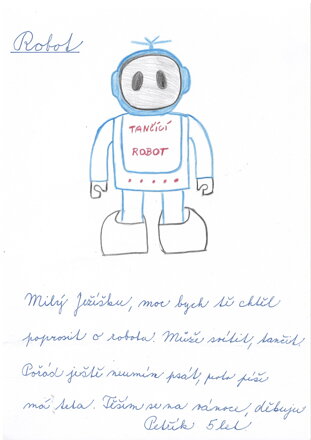 Robot
TANČÍCÍ
ROBOT
Milý Ježíšku, moc bych tě chtěl
poprosit o robota. Může svítit, tančit.
Pořád ještě neumím psát, proto píše
má teta. Těším se na vánoce, děkuju
Petřík 5 let